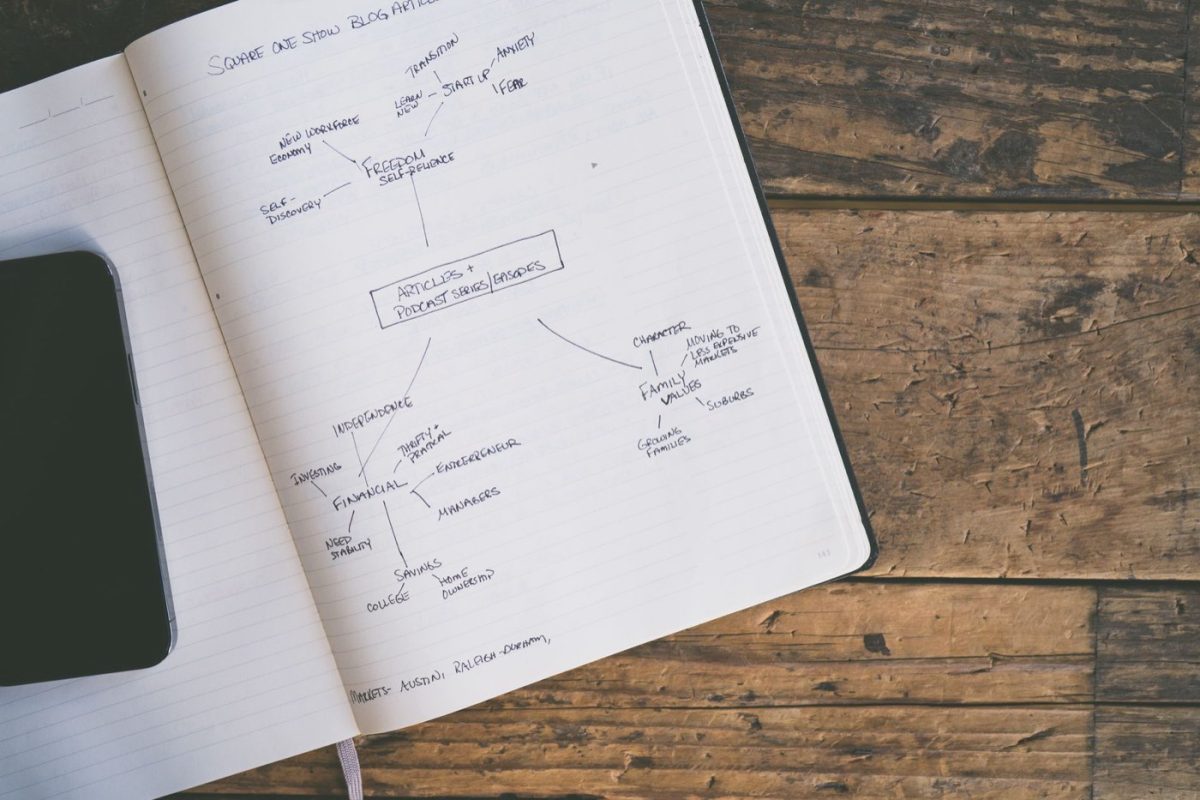 SQUARE ONE SHOW BLOG ARTICLE
TRANSITION
ANXIETY
START UP
FEAR
LEARN
NEW
NEW WORKFORCE
ECONOMY
FREEDOM
SELF-RELIENCE
SELF-
DISCOVERY
ARTICLES +
PODCAST SERIES/EPISODES
CHARACTER
MOVING TO
LESS EXPENSIVE
MARKETS
FAMILY
VALUES
SUBURBS
GROWING
FAMILIES
INDEPENDENCE
THRIFTY +
PRATICAL
ENTREPRENEUR
INVESTING
FINANCIAL
MANAGERS
NEED
STABILITY
SAVINGS
HOME
OWNERSHIP
COLLEGE
MARKETS- AUSTIN, RALEIGH-DURHAM,